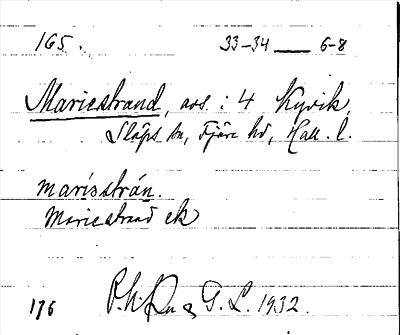 165. 33-34 — 6-8
Mariestrand, avs. i 4 Kyvik,
Släps sn, Fjäre hd, Hall. l.
marisstrán.
Mariestrand ek
176 &  G. L. 1932.